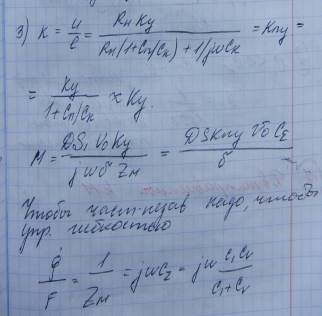 3) K = u/e = Rн Kу / (Rн(1+Cп/Cк) + 1/jωCк) = Kпу =
= Kу / (1+Cп/Cк) × Kу.
M = DS₁ V₀ Kу / (jω δ Zм) = DSKпу V₀ Cε / δ
Чтобы част-незав надо, чтобы
упр. гибкостью
φ̇/F = 1/Zм = jωcε = jω c₁cᵥ/(c₁+cᵥ)